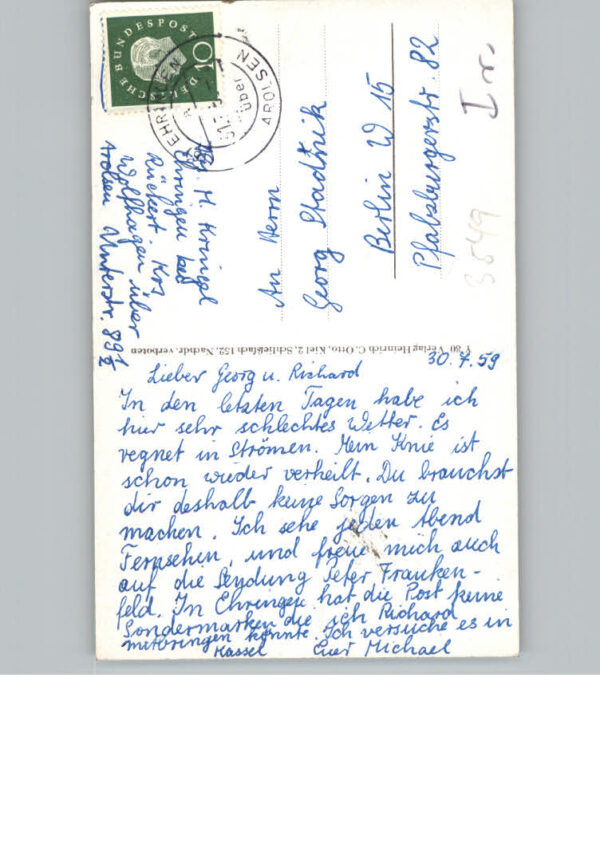 DEUTSCHE BUNDESPOST
10
EHRINGEN
über
AROLSEN
H. Krüngel
Ehringen bei
Rückert. Krs
Wolfhagen über
Arolsen Unterstr. 89 1/2
An Herrn
Georg Stadtnik
Berlin W 15
Pfalzburgerstr. 82
I r.
3549
Y 80 Verlag Heinrich C. Otto, Kiel 2, Schließfach 152. Nachdr. verboten
30.7.59
Lieber Georg u. Richard
In den letzten Tagen habe ich
hier sehr schlechtes Wetter. Es
regnet in Strömen. Mein Knie ist
schon wieder verheilt. Du brauchst
dir deshalb keine Sorgen zu
machen. Ich sehe jeden Abend
Fernsehen, und freue mich auch
auf die Sendung Peter Franken-
feld. In Ehringen hat die Post keine
Sondermarken die ich Richard
mitbringen könnte. Ich versuche es in
Kassel Euer Michael